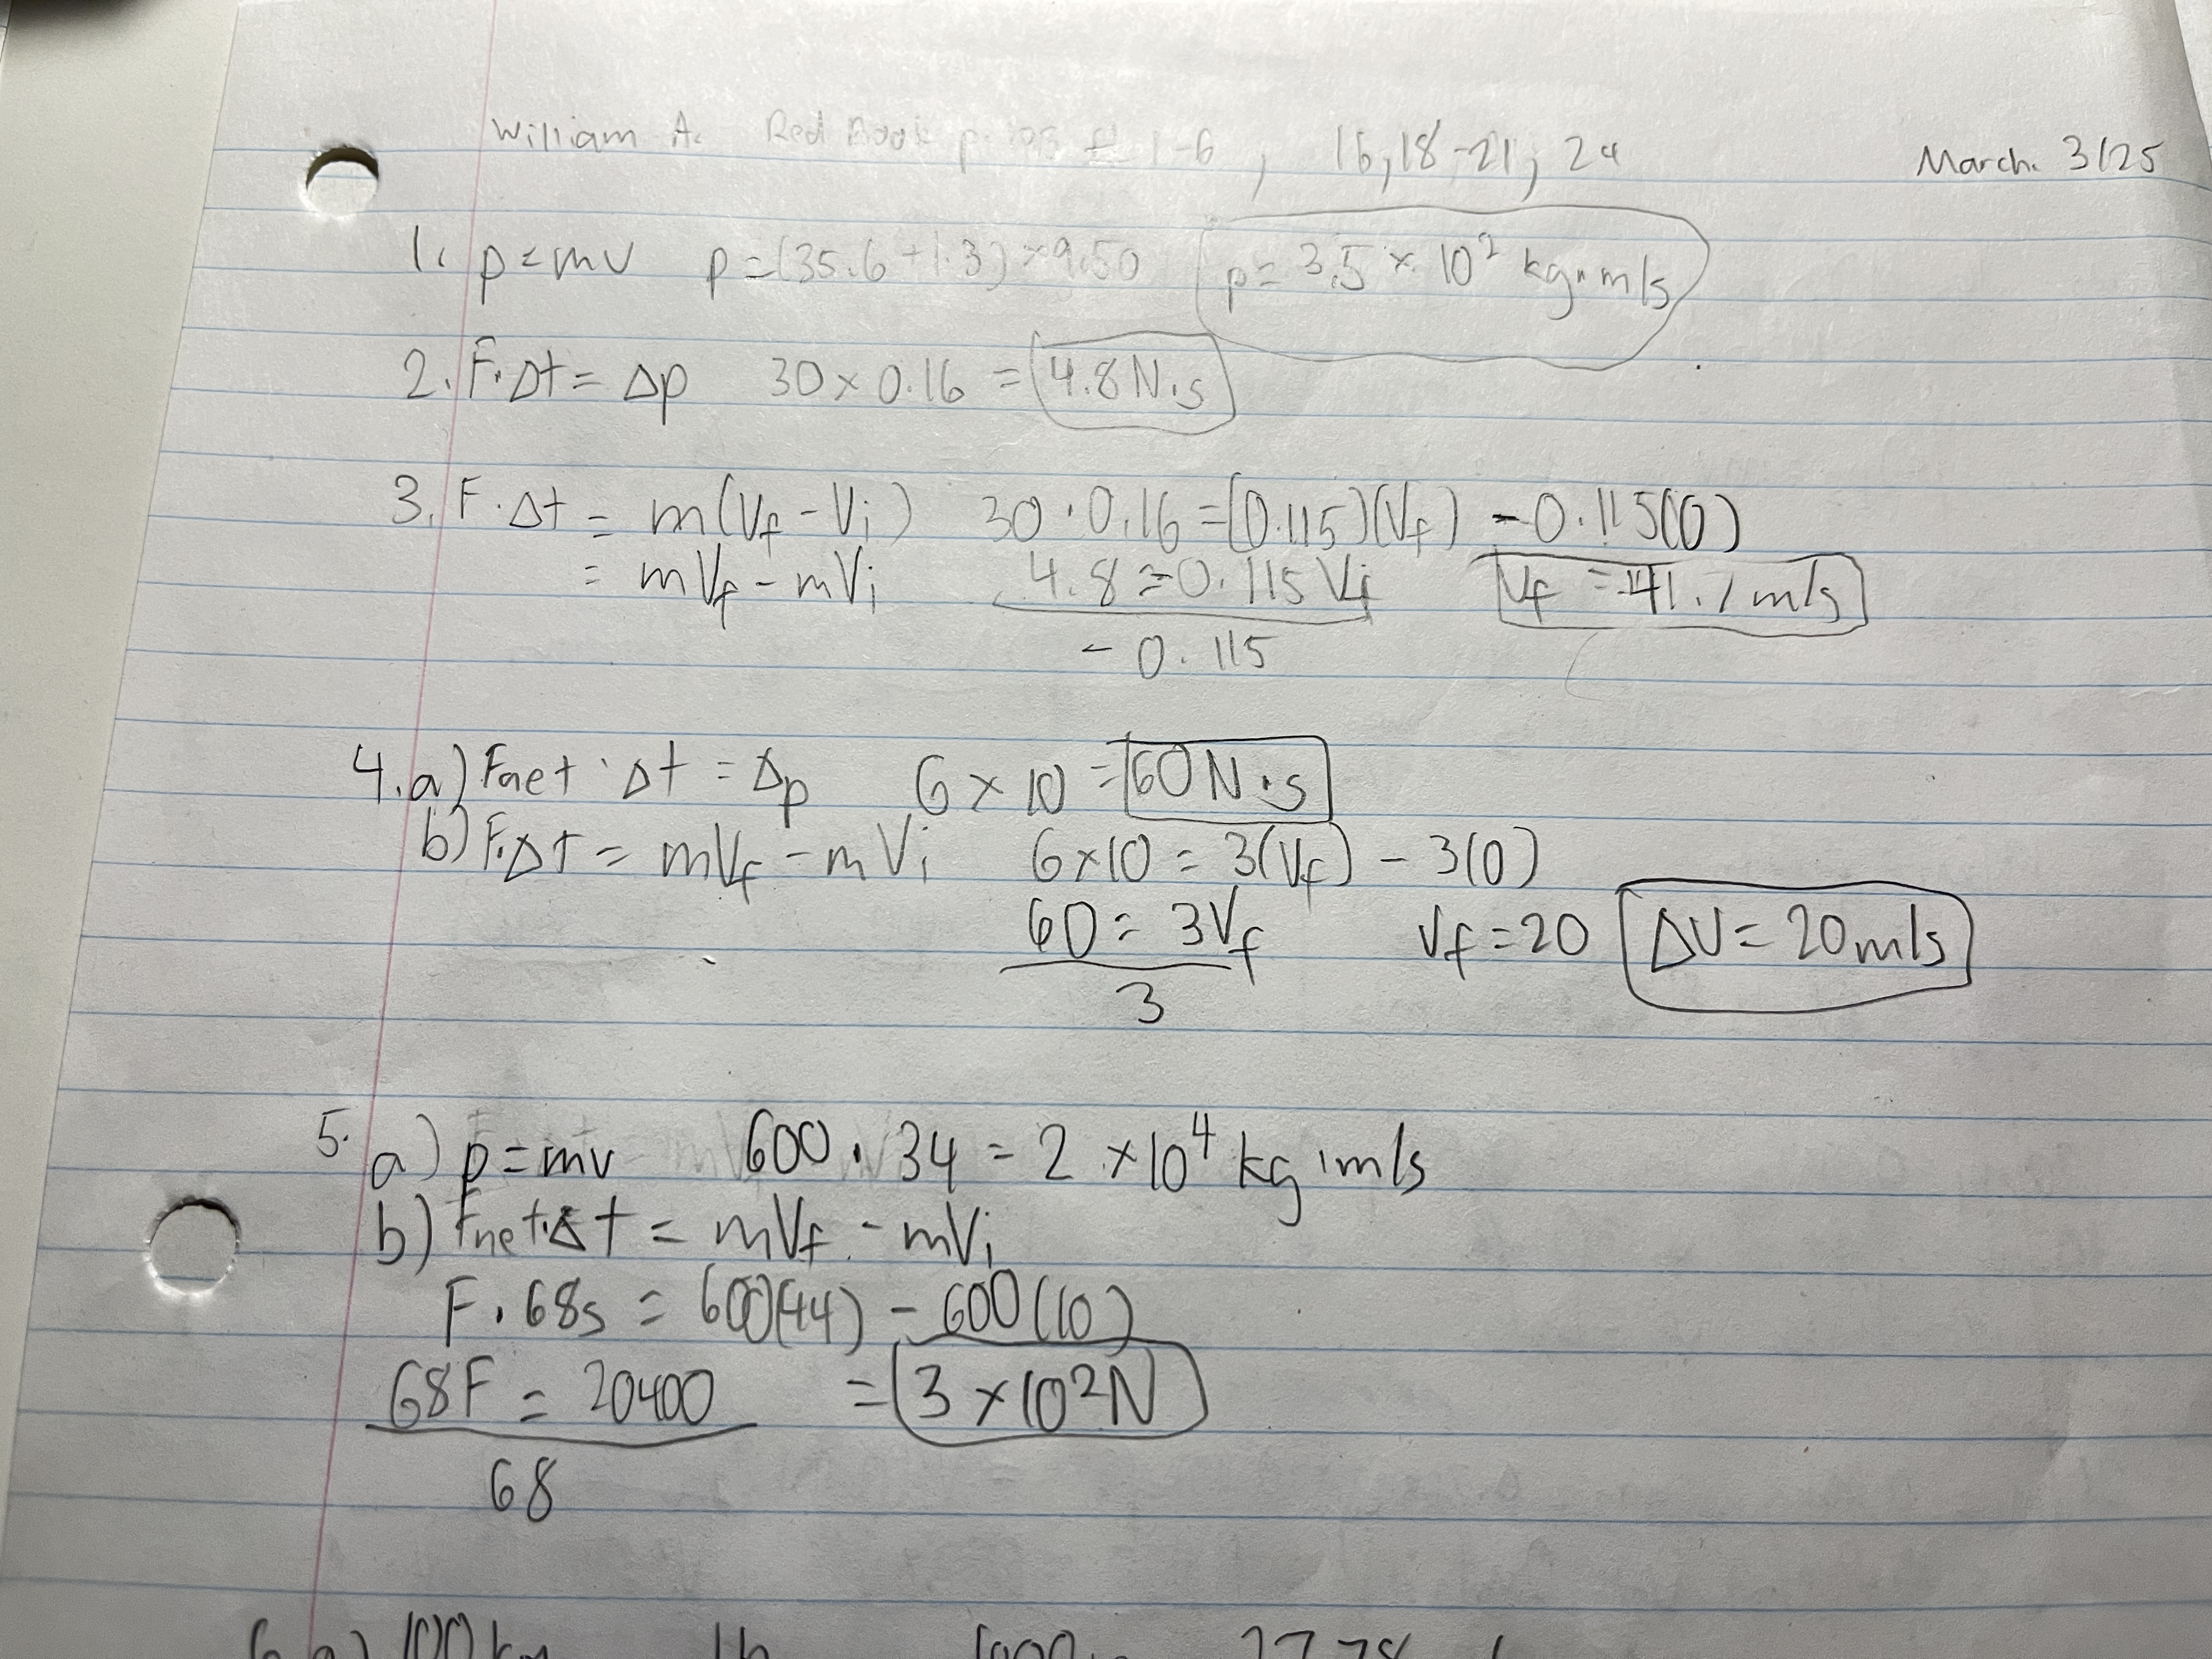 William A. Red Book p. 193 # 1-6, 16,18-21, 24 March. 3/25
1. p=mv p=(35.6+1.3)×9.50 p= 3.5 × 10² kg·m/s
2. F·Δt = Δp 30×0.16 = 4.8 N·s
3. F·Δt = m(Vf-Vi) 30·0.16=(0.115)(Vf) -0.115(0)
= mVf-mVi 4.8=0.115Vf Vf = 41.7 m/s
- 0.115
4. a) Fnet·Δt = Δp 6×10 = 60 N·s
b) F·Δt = mVf-mVi 6×10 = 3(Vf) - 3(0)
60 = 3Vf Vf=20 ΔV= 20m/s
3
5. a) p=mv 600·34 = 2 ×10⁴ kg·m/s
b) Fnet·Δt = mVf-mVi
F·68s = 600(44) - 600(10)
68F = 20400 = 3 ×10²N
68
6. a) 100km 1h 1000m 27.78